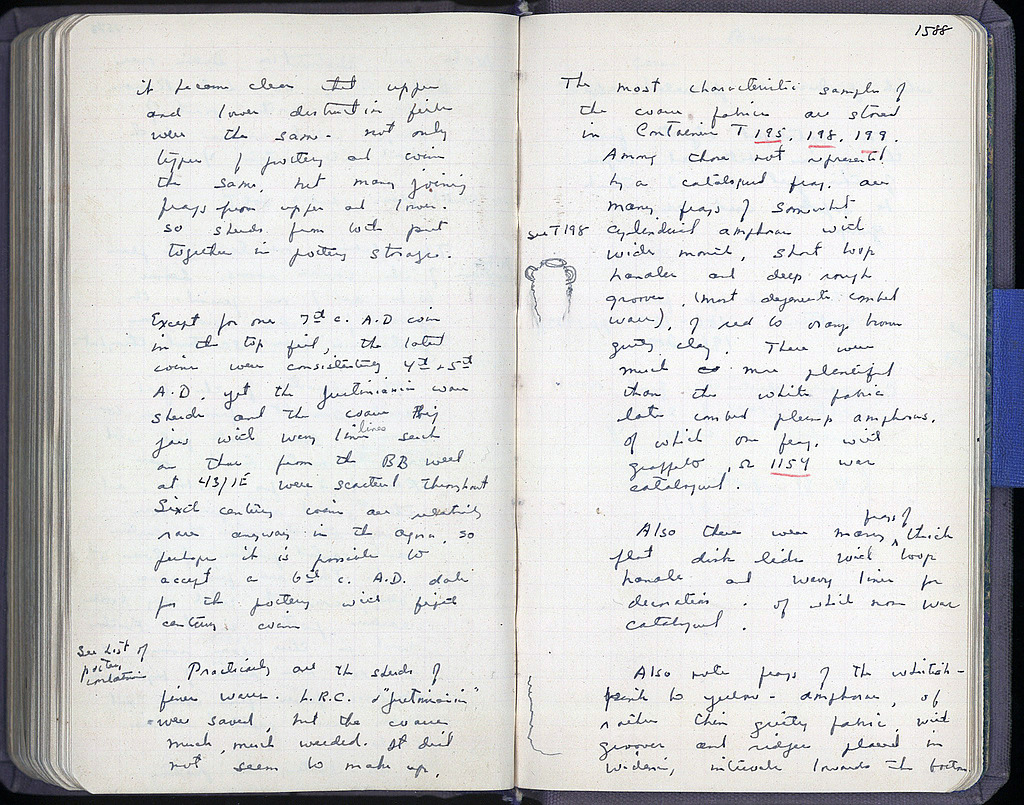 it became clear that upper
and lower destruction fills
were the same - not only
types of pottery and coins
the same, but many joining
frags from upper and lower.
so sherds from both put
together in pottery storage.
Except for one 7th c. A.D coin
in the top fill, the latest
coins were consistently 4th & 5th
A.D. yet the Justinianin ware
sherds and the coarse big
jars with wavy lines lines such
as those from the BB well
at 4/3/1E were scattered throughout
Sixth century coins are relatively
rare anyway in the agora, so
perhaps it is possible to
accept a 6th c. A.D. date
for the pottery with fifth
century coins
See List of
pottery
Practically all the sherds of
finer wares. L.R.C. & "Justinianin"
were saved, but the coarse
much, much weeded. It did
not seem to make up,
1588
The most characteristic samples of
the coarse fabrics are stored
in Container T 195, 198, 199.
Among those not represented
by a catalogued frag. are
many frags of somewhat
see T 198
cylindrical amphoras with
wide mouth, short loop
handles and deep rough
grooves, (most degenerate combed
ware), of red to orange brown
gritty clay. These were
much more plentiful
than the white fabric
late combed plump amphoras,
of which one frag. with
graffito, on 1154 was
catalogued.
Also there were many frags of thick
flat disk lids with loop
handle and wavy lines for
decoration. of which none was
catalogued.
Also note frags of the whitish-
pink to yellow - amphoras, of
rather thin gritty fabric, with
grooves and ridges placed in
widening intervals towards the bottom